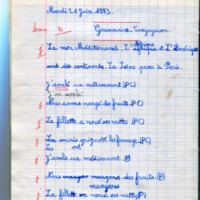 Mardi 21 Juin 1983.
B Grammaire Conjugaison.
La mer Méditerranée L'Afrique et L'Amérique
sont des continents. La Seine passe à Paris.
J'avalé un médicament (PC)
J'ai avalé
Nous avons mangé des fruits (PC)
La fillette a noué ses nattes (PC)
Les souris grignoté le fromage (PC)
Les ont
J'avale un médicament (P)
Nous mangeons des fruits (P)
mangeons
La fillette noue ses nattes (P)